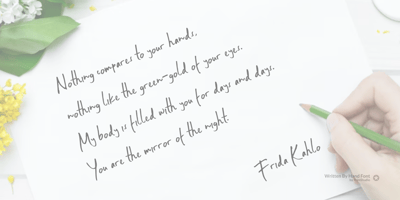 Nothing compares to your hands,
nothing like the green-gold of your eyes.
My body is filled with you for days and days.
You are the mirror of the night.
Frida Kahlo